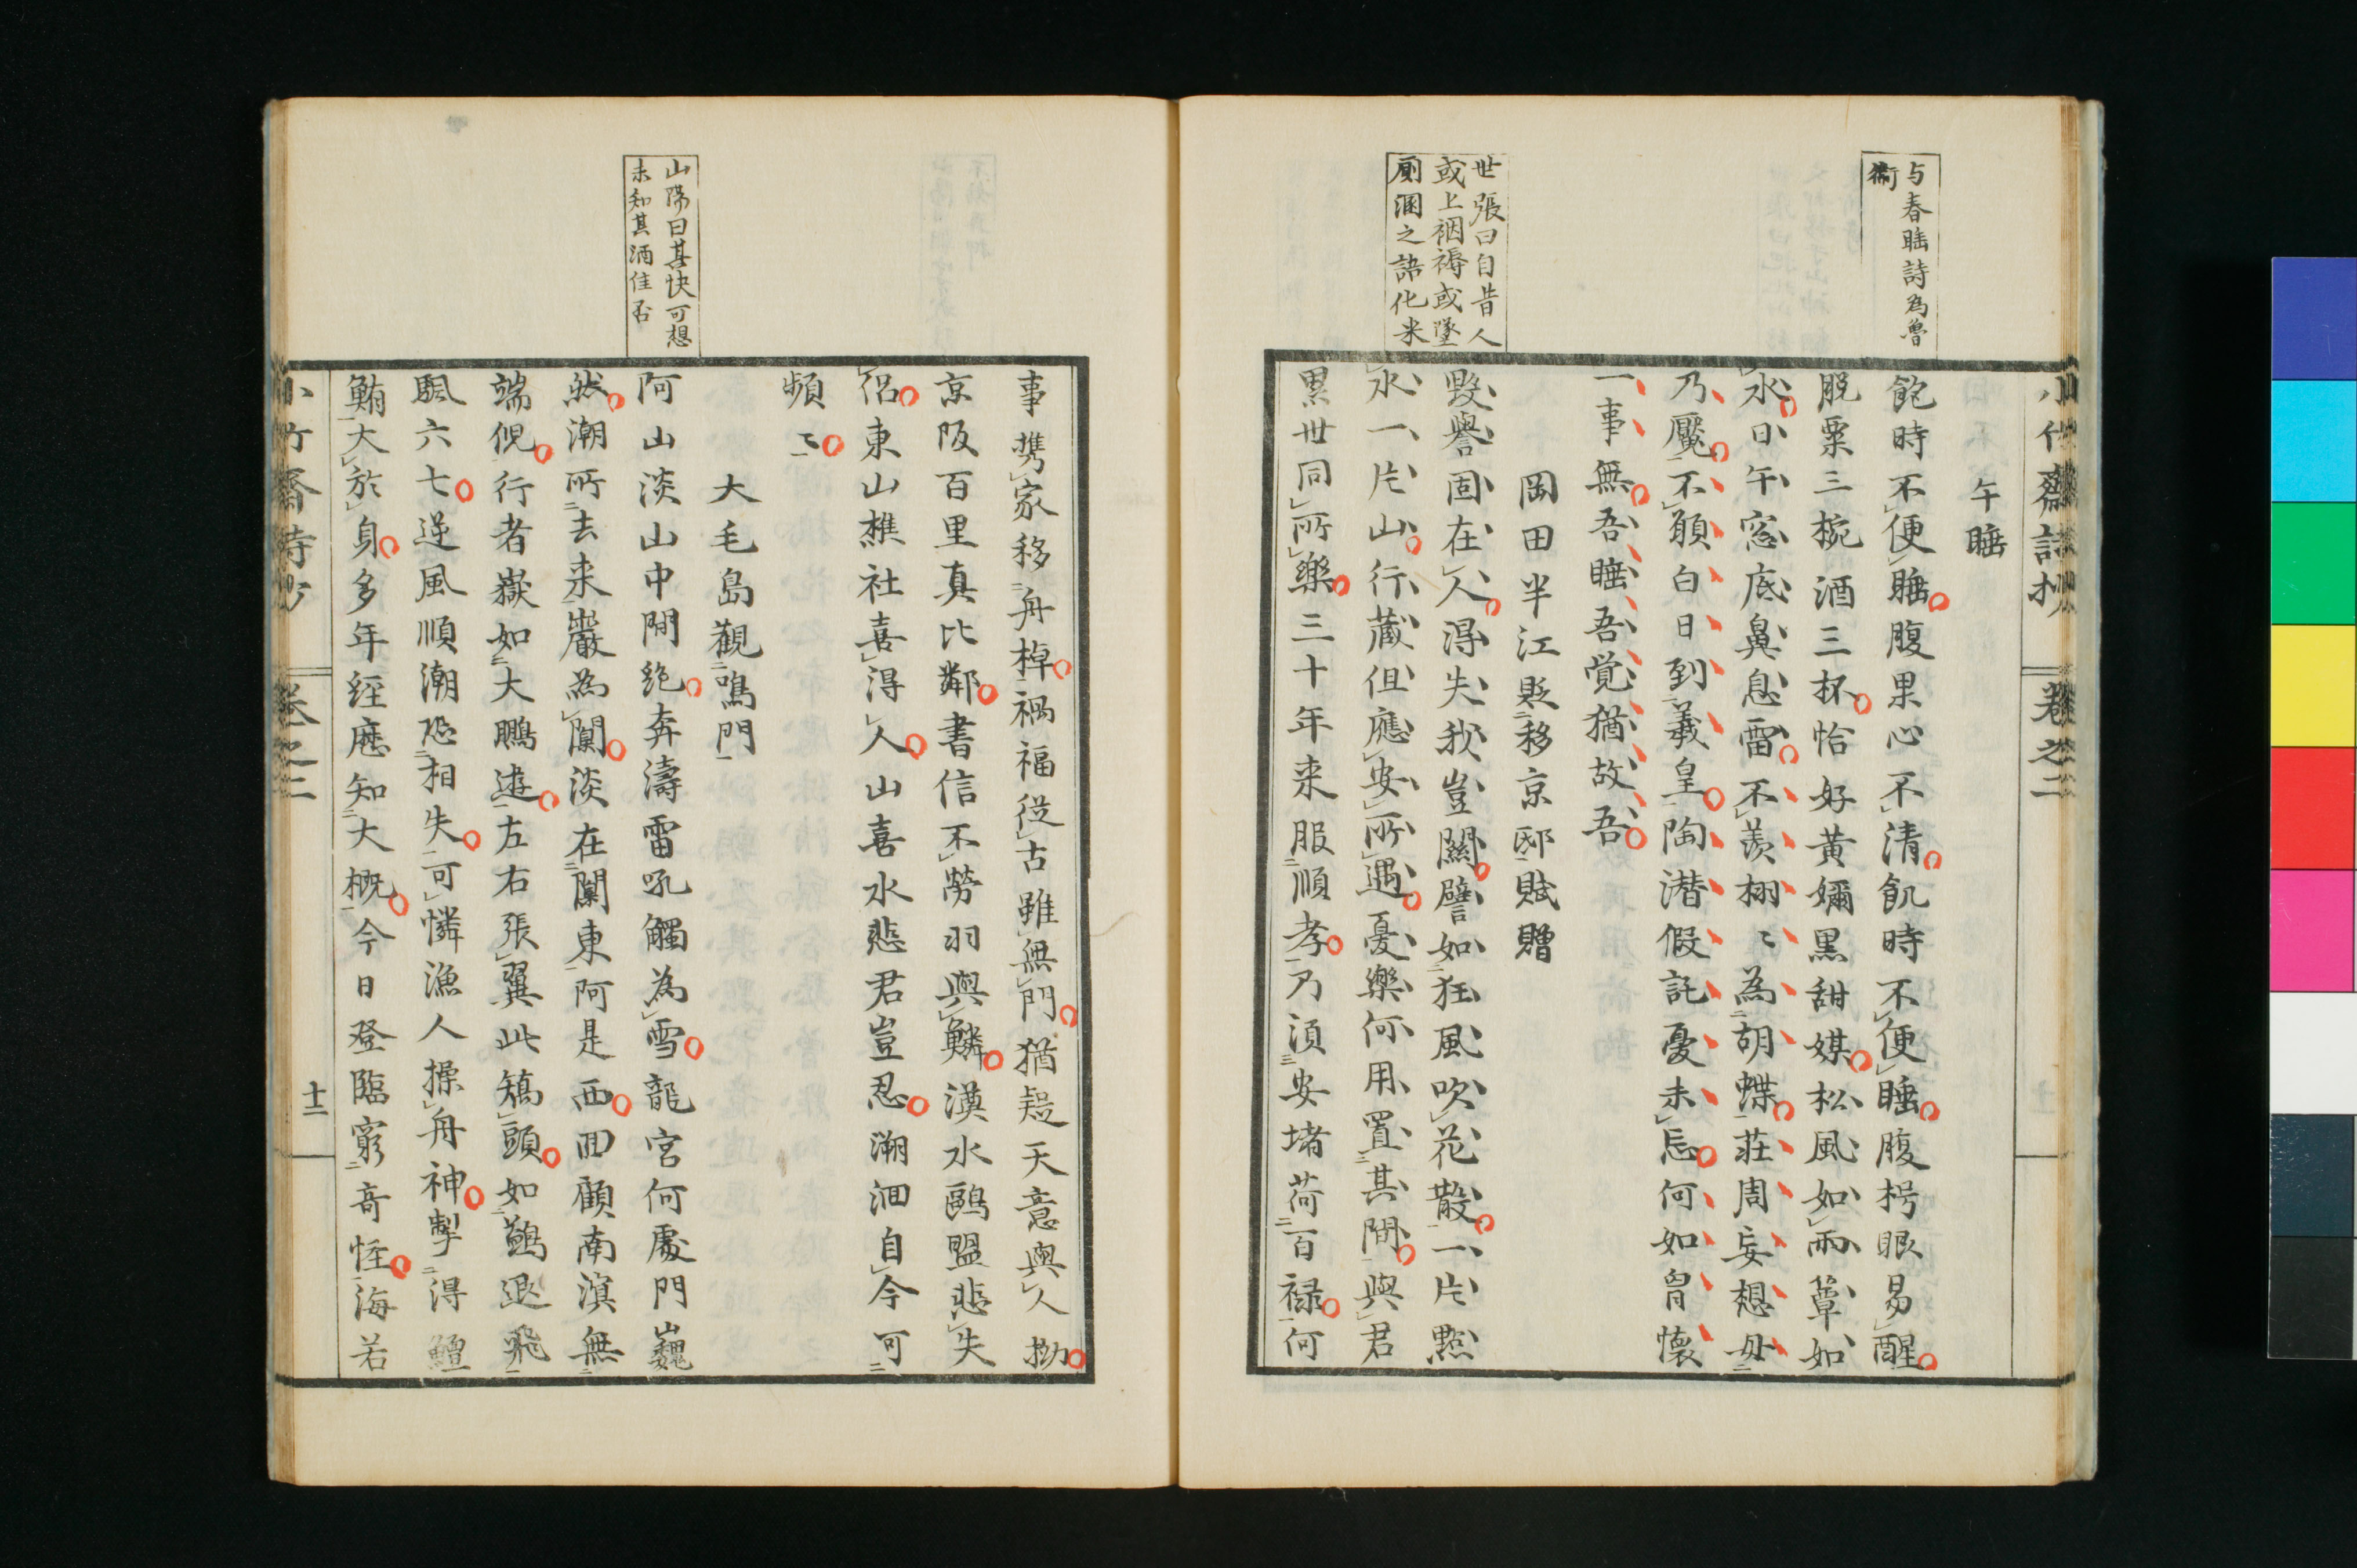 小竹齋詩抄　卷之二
与春睡詩為魯
衞
午睡
飽時不便睡腹果心不清飢時不便睡腹枵眼易醒
脱粟三椀酒三杯恰好黄嬭黒甜媒松風如雨簟如
水日午窓底鼻息雷不羨栩〻為胡蝶荘周妄想毋
乃魘不願白日到羲皇陶潜假託憂未忘何如胷懐
一事無吾睡吾覚猶故吾
岡田半江貶移京邸賦贈
世張曰自昔人
或上裀褥或墜
厠溷之語化来
毀譽固在人得失我豈關譬如狂風吹花散一片點
水一片山行蔵但應安所遇憂樂何用置其間與君
累世同所樂三十年来服順孝乃須安堵荷百禄何
事携家移舟棹禍福従古雖無門猶疑天意與人拗
京阪百里真比鄰書信不勞羽與鱗漢水鷗盟悲失
侶東山樵社喜得人山喜水悲君豈忍溯洄自今可
頻〻
大毛島觀鳴門
山陽曰其快可想
未知其酒佳否
阿山淡山中間絶奔濤雷吼觸為雪龍宮何處門巍
然潮所去来巖為闑淡在闑東阿是西囬顧南溟無
端倪行者嶽如大鵬遊左右張翼此鴙頭如鷁退飛
颿六七逆風順潮恐相失可憐漁人操舟神掣得鱣
鮪大於身多年経歴知大概今日登臨窮奇怪海若
小竹齋詩抄　卷之二　十二